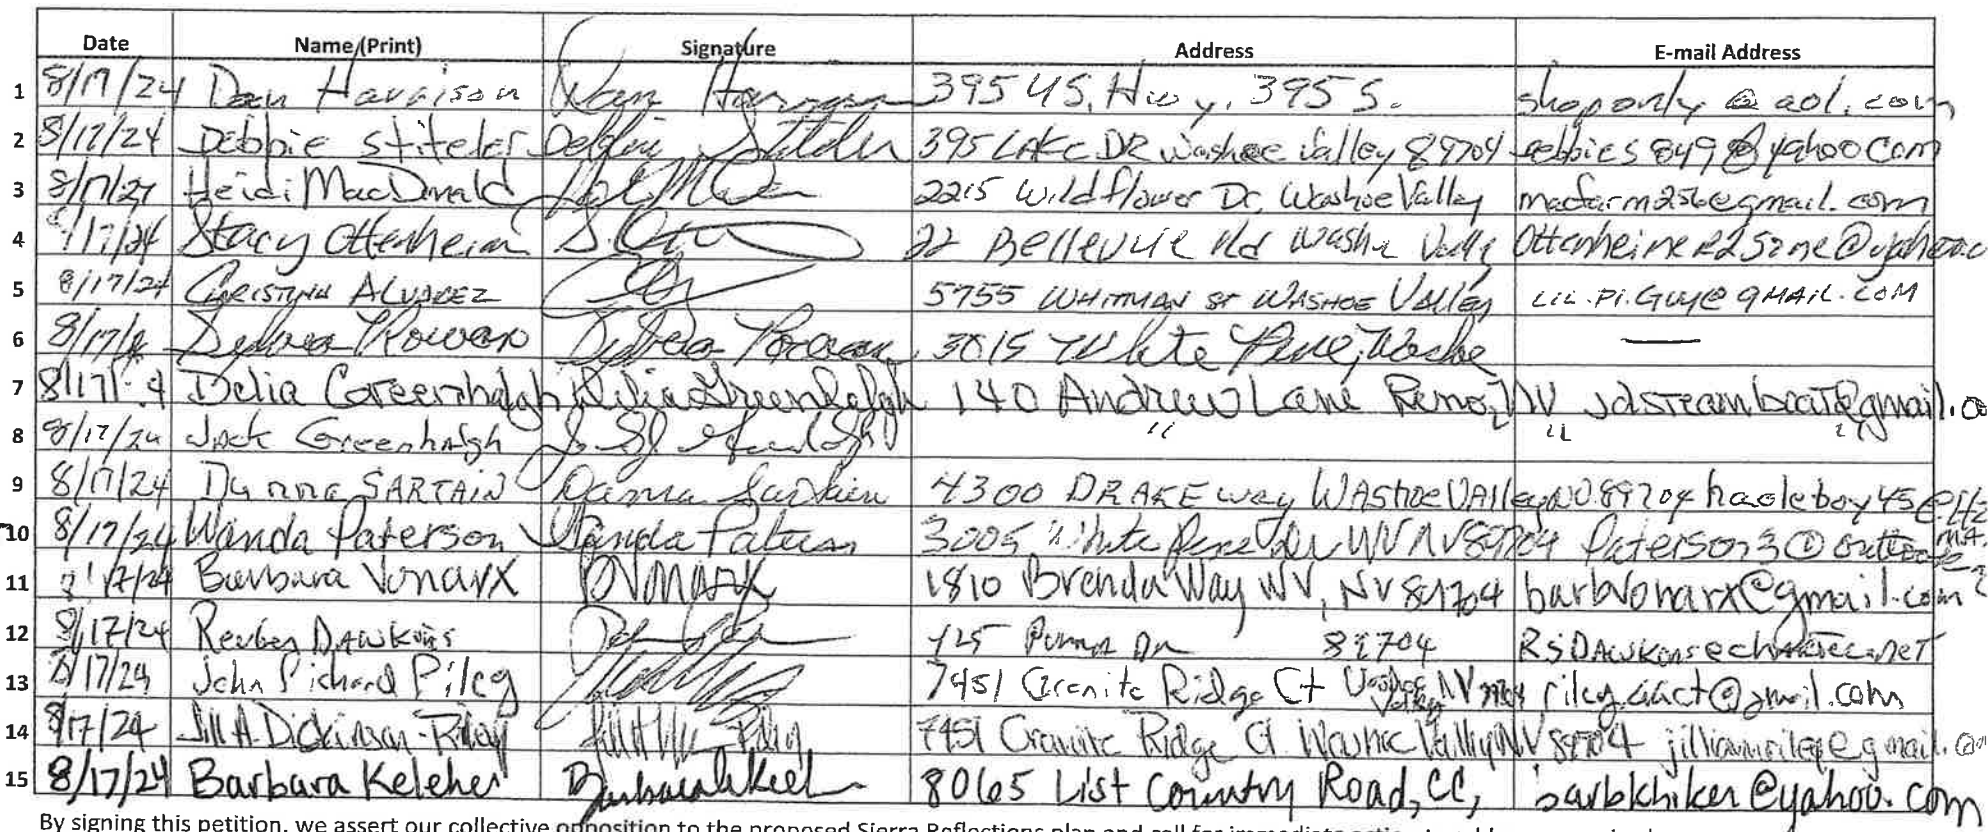 Date Name (Print) Signature Address E-mail Address
1 8/17/24 Dan Harrison Dan Harrison 395 US. Hwy. 395 S. shoponly@aol.com
2 8/17/24 Debbie Stiteler Debbie Stiteler 395 LAKE DR Washoe Valley 89704 debbies849@yahoo.com
3 8/17/24 Heidi MacDonald 2215 Wildflower Dr, Washoe Valley macfarm256@gmail.com
4 8/17/24 Stacy Ottenheim 22 Bellevue Rd Washoe Valley
5 8/17/24 CHRISTINA ALVAREZ 5755 WHITMAN ST WASHOE Valley LIL.Pi.Guy@GMAIL.COM
6 8/17/ Rowan 3015 White Pine, Washoe —
7 8/17/ 4 Delia Greenhalgh Delia Greenhalgh 140 Andrew Lane Reno, NV jdsteamboat@gmail.co
8 8/17/24 Jack Greenhalgh " " "
9 8/17/24 Danna SARTAIN Danna Sartain 4300 DRAKE way WAshoe VAlley NV 89704 haoleboy45@
10 8/17/24 Wanda Paterson Wanda Paterson 3005 White Pine Dr WV NV 89704 Paterson3@outlook
11 8/17/24 Barbara Vonarx BVonarx 1810 Brenda Way WV, NV 89704 barbvonarx@gmail.com
12 8/17/24 Reuben DAWKINS 89704
13 8/17/24 John Richard Riley 7451 Granite Ridge Ct Washoe Valley NV 89704 riley.aact@gmail.com
14 8/17/24 Jill A. Dickinson-Riley 7451 Granite Ridge Ct. Washoe Valley NV 89704 jillianriley@gmail.co
15 8/17/24 Barbara Keleher 8065 List Country Road, CC, barbkhiker@yahoo.com
By signing this petition, we assert our collective opposition to the proposed Sierra Reflections plan and call for immediate action